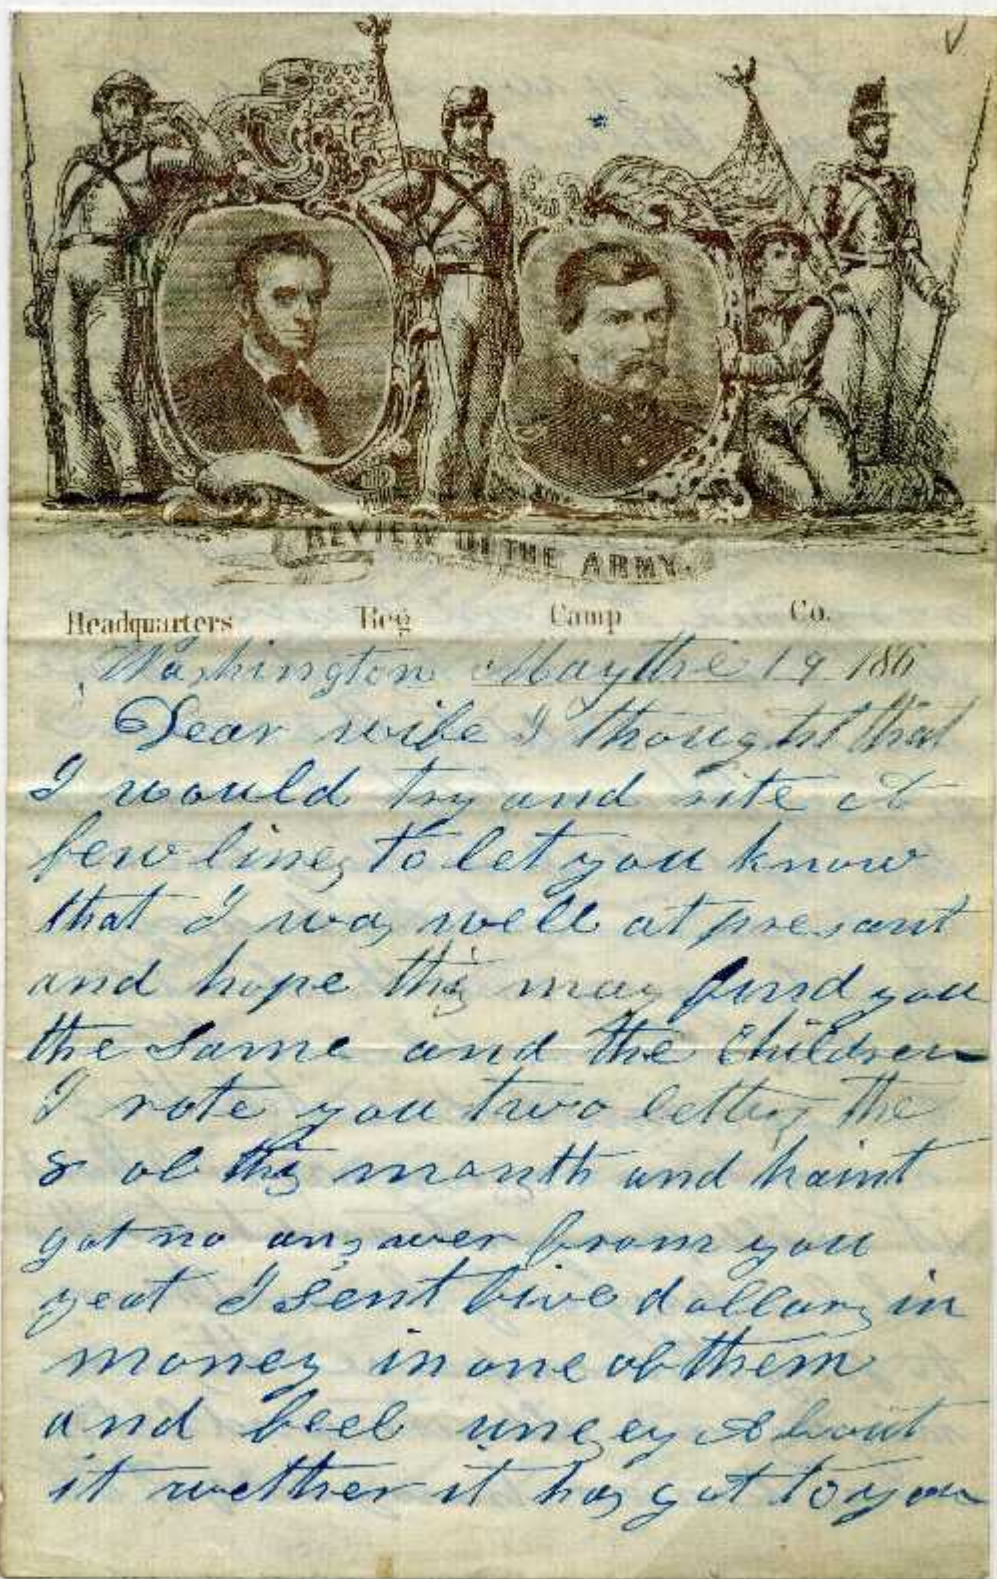 REVIEW OF THE ARMY.
Headquarters Reg Camp Co.
Washington May the 19 186
Dear wife I thought that
I would try and rite a
few lines to let you know
that I was well at presant
and hope this may find you
the same and the Children
I rote you two letters the
8 of this month and haint
got no answer from you
yeat I Sent five dollars in
money in one of them
and feel unesey About
it wether it has got to you